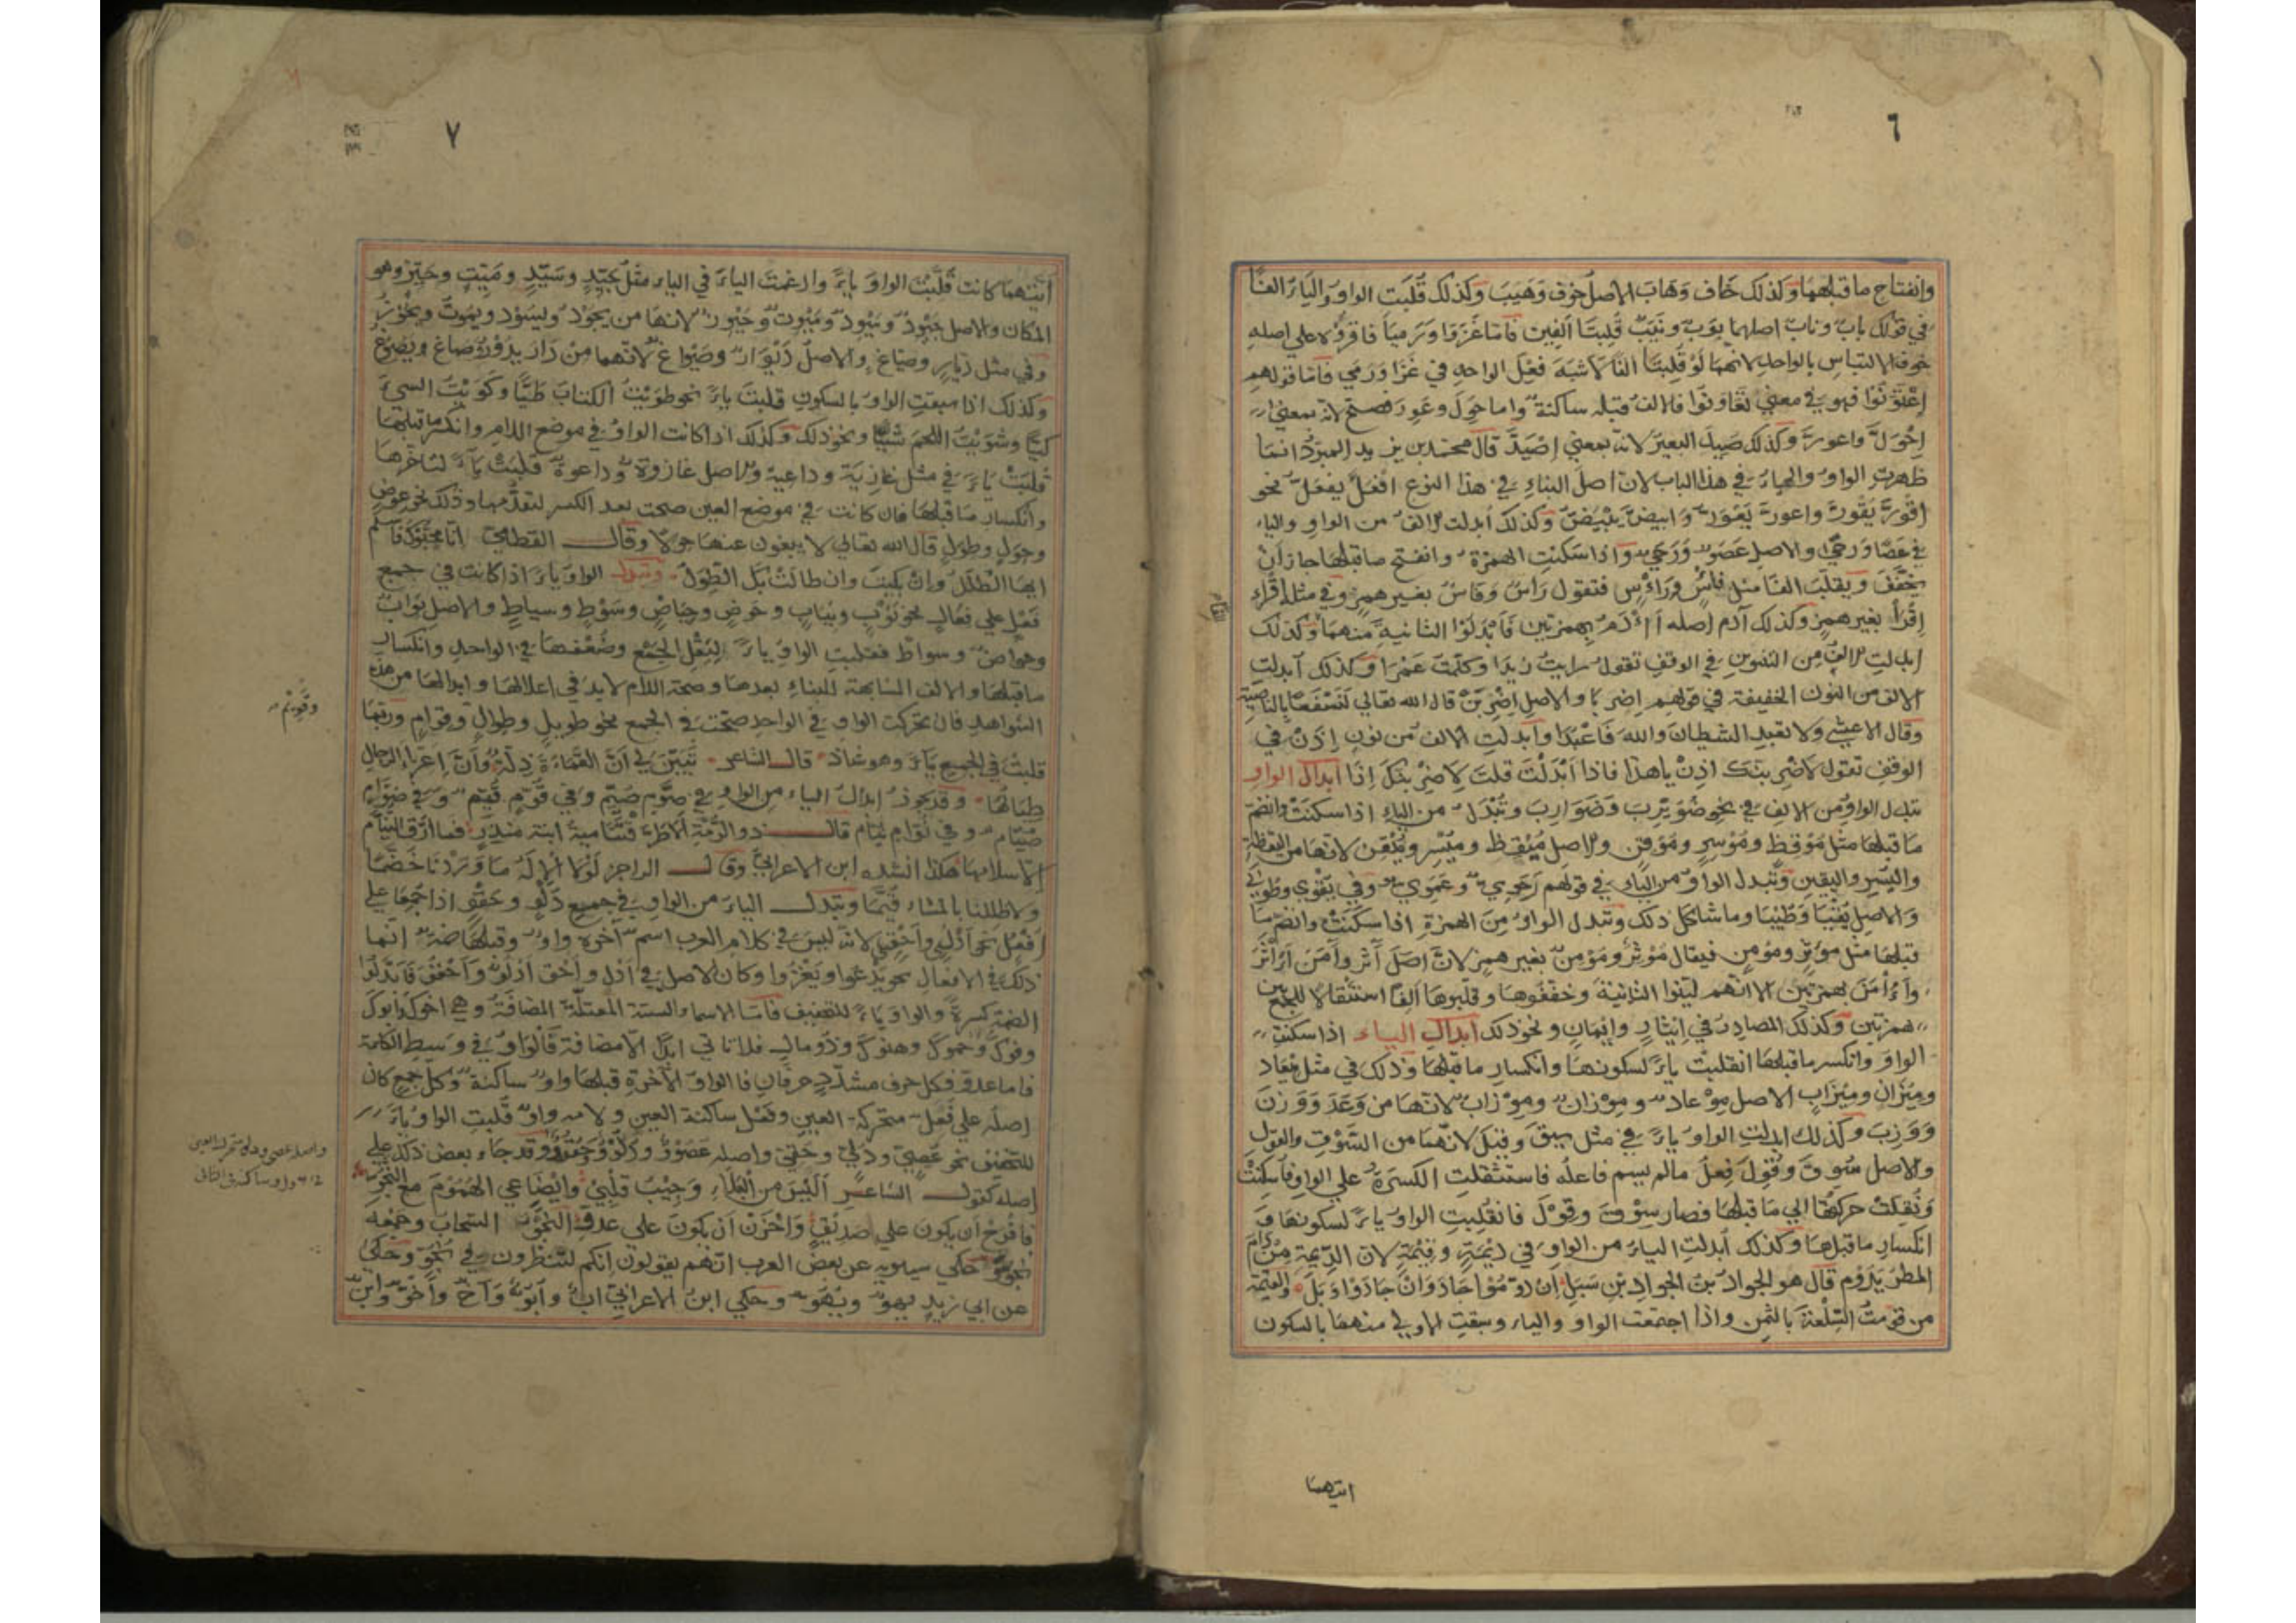 ٦
وانفتاح ما قبلهما وكذلك خَاف وَهَابَ الاصل خوف وَهَيَبَ وكذلك قُلبَت الواوُ واليَاءُ الفًا
في قولك بابٌ ونابٌ اصلهما بَوَبٌ ونَيَبٌ قُلِبتَا اَلِفين فامّا غَزَوَا وَرَميَا فاقرّوه علي اصلهِ
خوف الالتباس بالواحد لانهما لَوْ قلِبتَا الفًا لاَشبَهَ فعل الواحدِ في غَزَا وَرَمي فامّا قولهم
اِعْتَوَنُوا فهو في معني تَعَاوَنُوا فالالف قبله ساكنة واما حَوِلَ وعَوِرَ فصحّ لانه بمعني
اِحْوَلّ واعورّ وكذلك صَيِدَ البعيرُ لانه بمعني اِصْيَدَّ قال محمد بن يزيد المبرّد انما
ظهرت الواوُ والياءُ في هذا الباب لان اصلَ البناءِ في هذا النوع افْعَلّ يفعَلّ نحو
اِعورّ يَعْوَرّ وابيضّ يبْيَضّ وكذلك اُبدلت الالفُ من الواوِ والياء
في عَصًا وَرحًي والاصل عَصَوٌ وَرَحَيٌ واذا سَكنتِ الهمْزةُ وانفتح ما قبلهَا جاز اَنْ
يخفّفَ ويقلَبَ الفًا مثل فأسٌ ورَأسٍ فتقول رَاسٌ وَفاسٌ بغير همزٍ وفي مثل اِقْرَاء
اِقْرَا بغير همزٍ وكذلك آدم اصله أَأْدَم بهمزتين فاَبْدَلُوا الثانيةَ منهما وكذلك
اُبدلتِ الالفُ من التنوين في الوقفِ تقول رايتُ زيدَا وكلّمتُ عَمْرَا وكذلك اُبدلتِ
الالف من النون الخفيفة في قولهم اِضربَا والاصل اِضْرِبَنْ قال الله تعالي لَنَسْفَعًا بالناصيَةِ
وقال الاعشي ولا تعبدِ الشيطانَ واللهَ فَاعْبُدَا واُبدلتِ الالف من نون اِذَنْ في
الوقفِ تقول لاَضْرِبَنّك اذنْ يا هذا فاذا اَبْدَلْتَ قلتَ لاَضْرِبَنّكَ اِذَا ابدال الواو
تبدل الواوُ من الالف في نحو ضُوَيْرِبَ وَضَوَارِبَ وتُبْدَلُ من الياءِ اذا سكنَتْ وانضمّ
مَا قبلها مثل مُوْقِظ ومُوْسِر ومُوْقِن والاصل مُيْقظ ومُيْسِر ومُيْقن لانها من اليَقظةِ
واليُسْرِ واليقين وتبدل الواوُ من الياءِ في قولهم رَحَوِيٌ وعَمَوِيٌ وفي تَقْوي وطُوبي
وَالاصل تقْيَا وَطُيْبَا وما شاكل ذلك وتبدل الواوُ مِنَ الهمزةِ اذا سكنتْ وانضم مَا
قبلها مثل مؤْثِرٍ ومؤمنٍ فيقال مُوْثِرٌ ومُوْمِنٌ بغير همزٍ لانّ اصلَ آثَر وآمَنَ أَأْثَرَ
وأَأْمَنَ بهمزتين الا انهم ليّنوا الثانيةَ وخفّفوها وقلبوها اَلِفًا استثقالا للجمع بين
همزتين وكذلك المصادر في اِيثار وايمَانٍ ونحوذلك ابدال الياء اذا سكنتِ
الواوُ وانكسر ما قبلهَا انقلبتْ ياءً لسكونهَا وانكسارِ ما قبلهَا وذلك في مثل مِيعَاد
ومِيْزَانٍ ومِيْزَابٍ الاصل مِوْعادٌ ومِوْزانٌ ومِوْزابٌ لانهَا من وَعَدَ وَوَزنَ
وَوَزبَ وكذلك ابدلت الواوُ ياءً في مثل سِيقَ وقِيلَ لانّهما من السّوقِ والقول
والاصل سُوِقَ وقُوِلَ فِعلُ مالم يسم فاعلُه فاستثقلتِ الكسرَةُ علي الواو فاُسكِنتْ
وَنُقِلتْ حركتُهَا الي مَا قبلها فصار سِوْقَ وقِوْلَ فانقلبتِ الواوُ ياءً لسكونهَا وَ
انكسارِ ما قبلها وكذلك اُبدلتِ الياءُ من الواوِ في دِيْمَةٍ وقِيْمَةٍ لان الدّيمة مِنْ دَامَ
المطرُ يَدُوم قال هو الجوادُ بنُ الجوادِ بنِ سَبَلِ اِنْ دوّمُوْا جَادَ وَانْ جَادُوْا وَبَلَ والقيمة
من قوّمتُ السّلعةَ بالثمنِ واذا اجتمعت الواو والياء وسبقتِ الاولي منهما بالسكون
ايتهما
٧
اَيّتُهمَا كانت قلَبْتَ الواوَ ياءً وادغمتَ الياءَ في الياء مثل جَيّدٍ وسَيّدٍ ومَيّتٍ وحَيّزٍ وهو
المكان والاصل جَيْوِدٌ وسَيْوِدٌ ومَيْوِتٌ وحَيْوِزٌ لانهَا من يجودُ ويسُوْد ويمُوتُ ويحُوْزُ
وفي مثل دَيّارٍ وصيّاغٍ والاصلُ دَيْوَارٌ وصَيْوَاغ لانّهما مِنْ دَارَ يدُوْرُ وصاغ ويَصُوغُ
وكذلك اذا سبقتِ الواوُ بالسكونِ قلبتَ ياءً نحو طوَيْتُ الكتابَ طَيًّا وكَوَيْتُ الشيءَ
كيًّا وشوَيْتُ اللحمَ شيًّا ونحوذلك وكذلك اذا كانت الواوُ في موضع اللام وانكسر ما قبلَها
قلبَتْ يَاءً في مثل غازِيَة وداعية والاصل غازِوَة وداعوة قلبَتْ ياءً لتاخّرها
وانكسارِ مَا قبلهَا فان كانت في موضع العين صحت بعد الكسر لتقدّمها وذلك نحو عِوَضٍ
وحِوَلٍ وطِوَلٍ قال الله تعالي لا يبغون عنها حِولا وقال القطامي انّا محيّوك فاسلم
ايها الطلَلُ وانْ بَلِيتَ وان طالَتْ بكَ الطِّوَلُ وتبدل الواوُ ياءً اذا كانت في جمع
فَعْلٍ علي فِعَالٍ نحو ثَوْبٍ وثيابٍ وحوضٍ وحِيَاضٍ وسَوْطٍ وسياطٍ والاصل ثوابٌ
وحواضٌ وسواطٌ فقلبتِ الواوُ ياءً لِثِقَل الجَمْع وضُعْفهَا في الواحدِ وانكسار
ما قبلهَا والالف المشابهة للياءِ بعدهَا وصحة اللام لا بد في اعلالهَا وابدالها من هذه
الشواهدِ فان تحركت الواو في الواحدِ صحّتْ في الجمع نحو طويلٍ وطِوالٍ وقوامٍ وربّمَا
قلبتْ في الجميع ياءً وهو شاذ قال الشاعر تبيّنَ لي اَنّ القمَاءةَ ذِلّةٌ وَاَنّ اَعِزّاءَ الرّجالِ
طِيَالُهَا وقد يجوز ابدالُ الياء من الواوِ في صُوّمٍ صيّم وفي قُوّمٍ قيّم وفي صُوّام
صيّام وفي نُوّام نيّام قال ذو الرُّمّةِ اَلا طرَقتْنا ميّةُ ابنة منذر فما ارّق النُيّام
الا سلامها هكذا انشده ابن الاعرابي وقال الراجز لَوْلَا الْاِلَهُ مَا وَرَدْنَا خَضّمَا
ولا ظللنا بالمَشاء قُيَّمَا وتبدل الياءُ من الواوِ في جميع دَلْوٍ وحَقْوٍ اذا جُمِعَا علي
اَفْعُلٍ نحو اَدْلٍ واَحْقٍ لانه ليسَ في كلام العرب اسم آخره واوٌ وقبلهَا ضمّةٌ انّما
ذلك في الافعال نحو يدْعوا ويَغْزُوا وكان الاصل في اَدْلٍ واَحْقٍ اَدْلُوٌ وَاَحْقُوٌ فابْدَلُوا
الضمّةَ كسرةً والواوَ ياءً للتخفيف فامّا الاسماءُ الستة المعتلّة المضافة وهي اخوك وابوك
وفوك وحموك وهنوك وذُو مال فلا تاتي ابدًا الا مضافة فالواوُ في وسط الكلمة
فاما عدوّ فكل حرف مشدّدٍ حرفان فالواو الآخرة قبلها واو ساكنة وكلّ جمعٍ كان
اصلُه علي فَعَلٍ متحركة العينِ وفَعْل ساكنة العين ولامه واوٌ قُلبتِ الواوُ ياءً
للتخفيف نحو عُصِيّ ودُليّ وحُقيّ واصله عُصُوْوٌ ودُلُوْوٌ وحُقُوْوٌ وقد جاء بعض ذلك علي
اصله كقول الشاعر اَلَيْسَ من البَلاءِ وَجِيْبُ قَلْبيْ وايضَاعي الهُمُوْمَ مع النُّجُوِّ
فافرحُ اَن يكونَ علي صديقٍ وَاحْزَن اَن يكون على عدوٍّ النّجْوُ السّحابُ وجمعُه
نجوّ حكي سيبويه عن بعض العرب انّهم يقولون انكم لتنظرون في نُحوٍّ وحكي
عن ابي زيدٍ بهوٌ وبُهُوٌّ وحكي ابنُ الاعرابيّ ابٌ واُبُوٌّ وَاَخٌ واُخُوٌّ وابنٌ
وقويمٌ